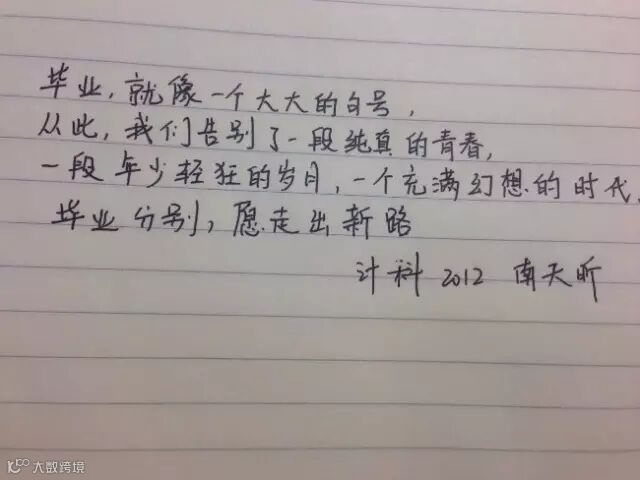 毕业，就像一个大大的句号，
从此，我们告别了一段纯真的青春，
一段年少轻狂的岁月，一个充满幻想的时代，
毕业分别，愿走出新路
计科 2012 南天昕
大数跨境